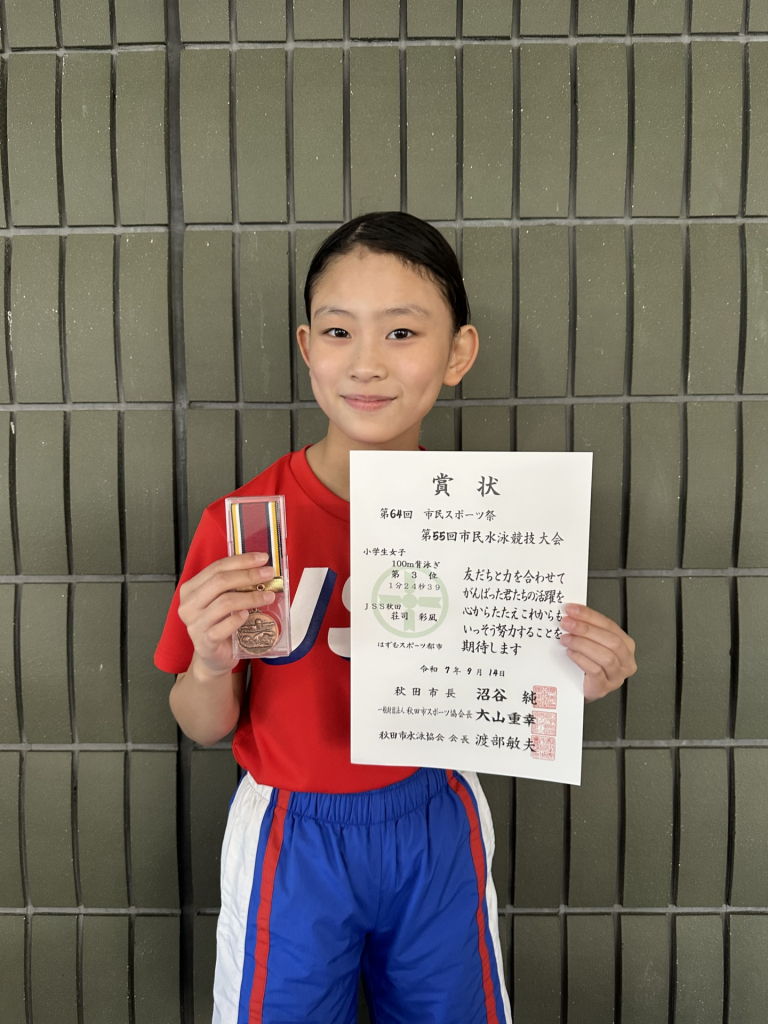 賞状
第64回 市民スポーツ祭
第55回市民水泳競技大会
小学生女子
100m背泳ぎ
第 3 位
1分24秒39
JSS秋田
荘司 彩凪
はずむスポーツ都市
友だちと力を合わせて
がんばった君たちの活躍を
心からたたえこれからも
いっそう努力することを
期待します
令和 7年 9月 14日
秋田市長 沼谷 純
一般財団法人 秋田市スポーツ協会会長 大山重幸
秋田市水泳協会 会長 渡部敏夫